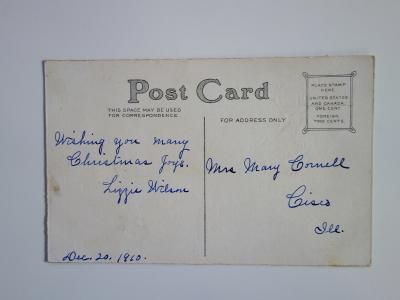 Post Card
THIS SPACE MAY BE USED
FOR CORRESPONDENCE.
FOR ADDRESS ONLY
PLACE STAMP
HERE.
UNITED STATES
AND CANADA,
ONE CENT.
FOREIGN,
TWO CENTS.
Wishing you many
Christmas Joys.
Lizzie Wilson
Dec. 20, 1910.
Mrs Mary Cornell
Cisco
Ill.